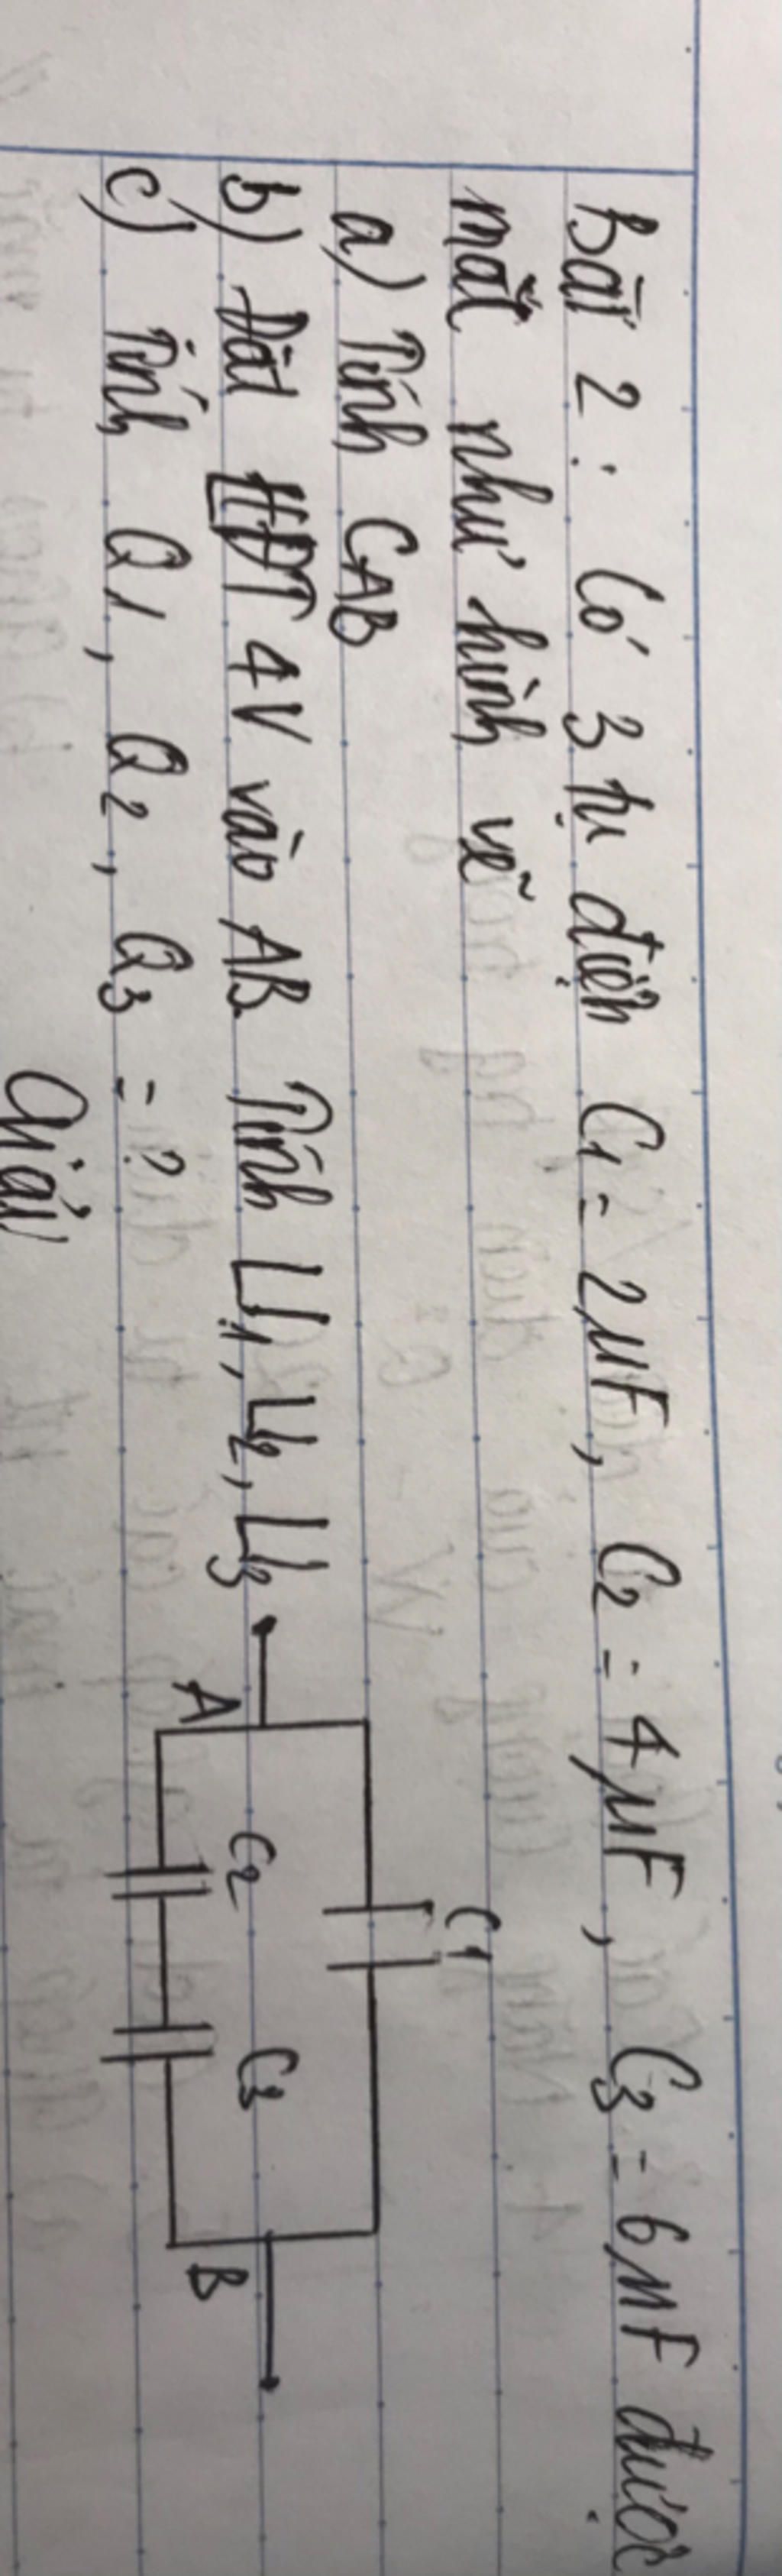 Bài 2: Có 3 tụ điện C1 = 2μF, C2 = 4μF, C3 = 6μF được
mắc như hình vẽ
a) Tính CAB
b) Đặt HĐT 4V vào AB Tính U1, U2, U3
c) Tính Q1, Q2, Q3 = ?
Giải
C1
C2 C3
A B